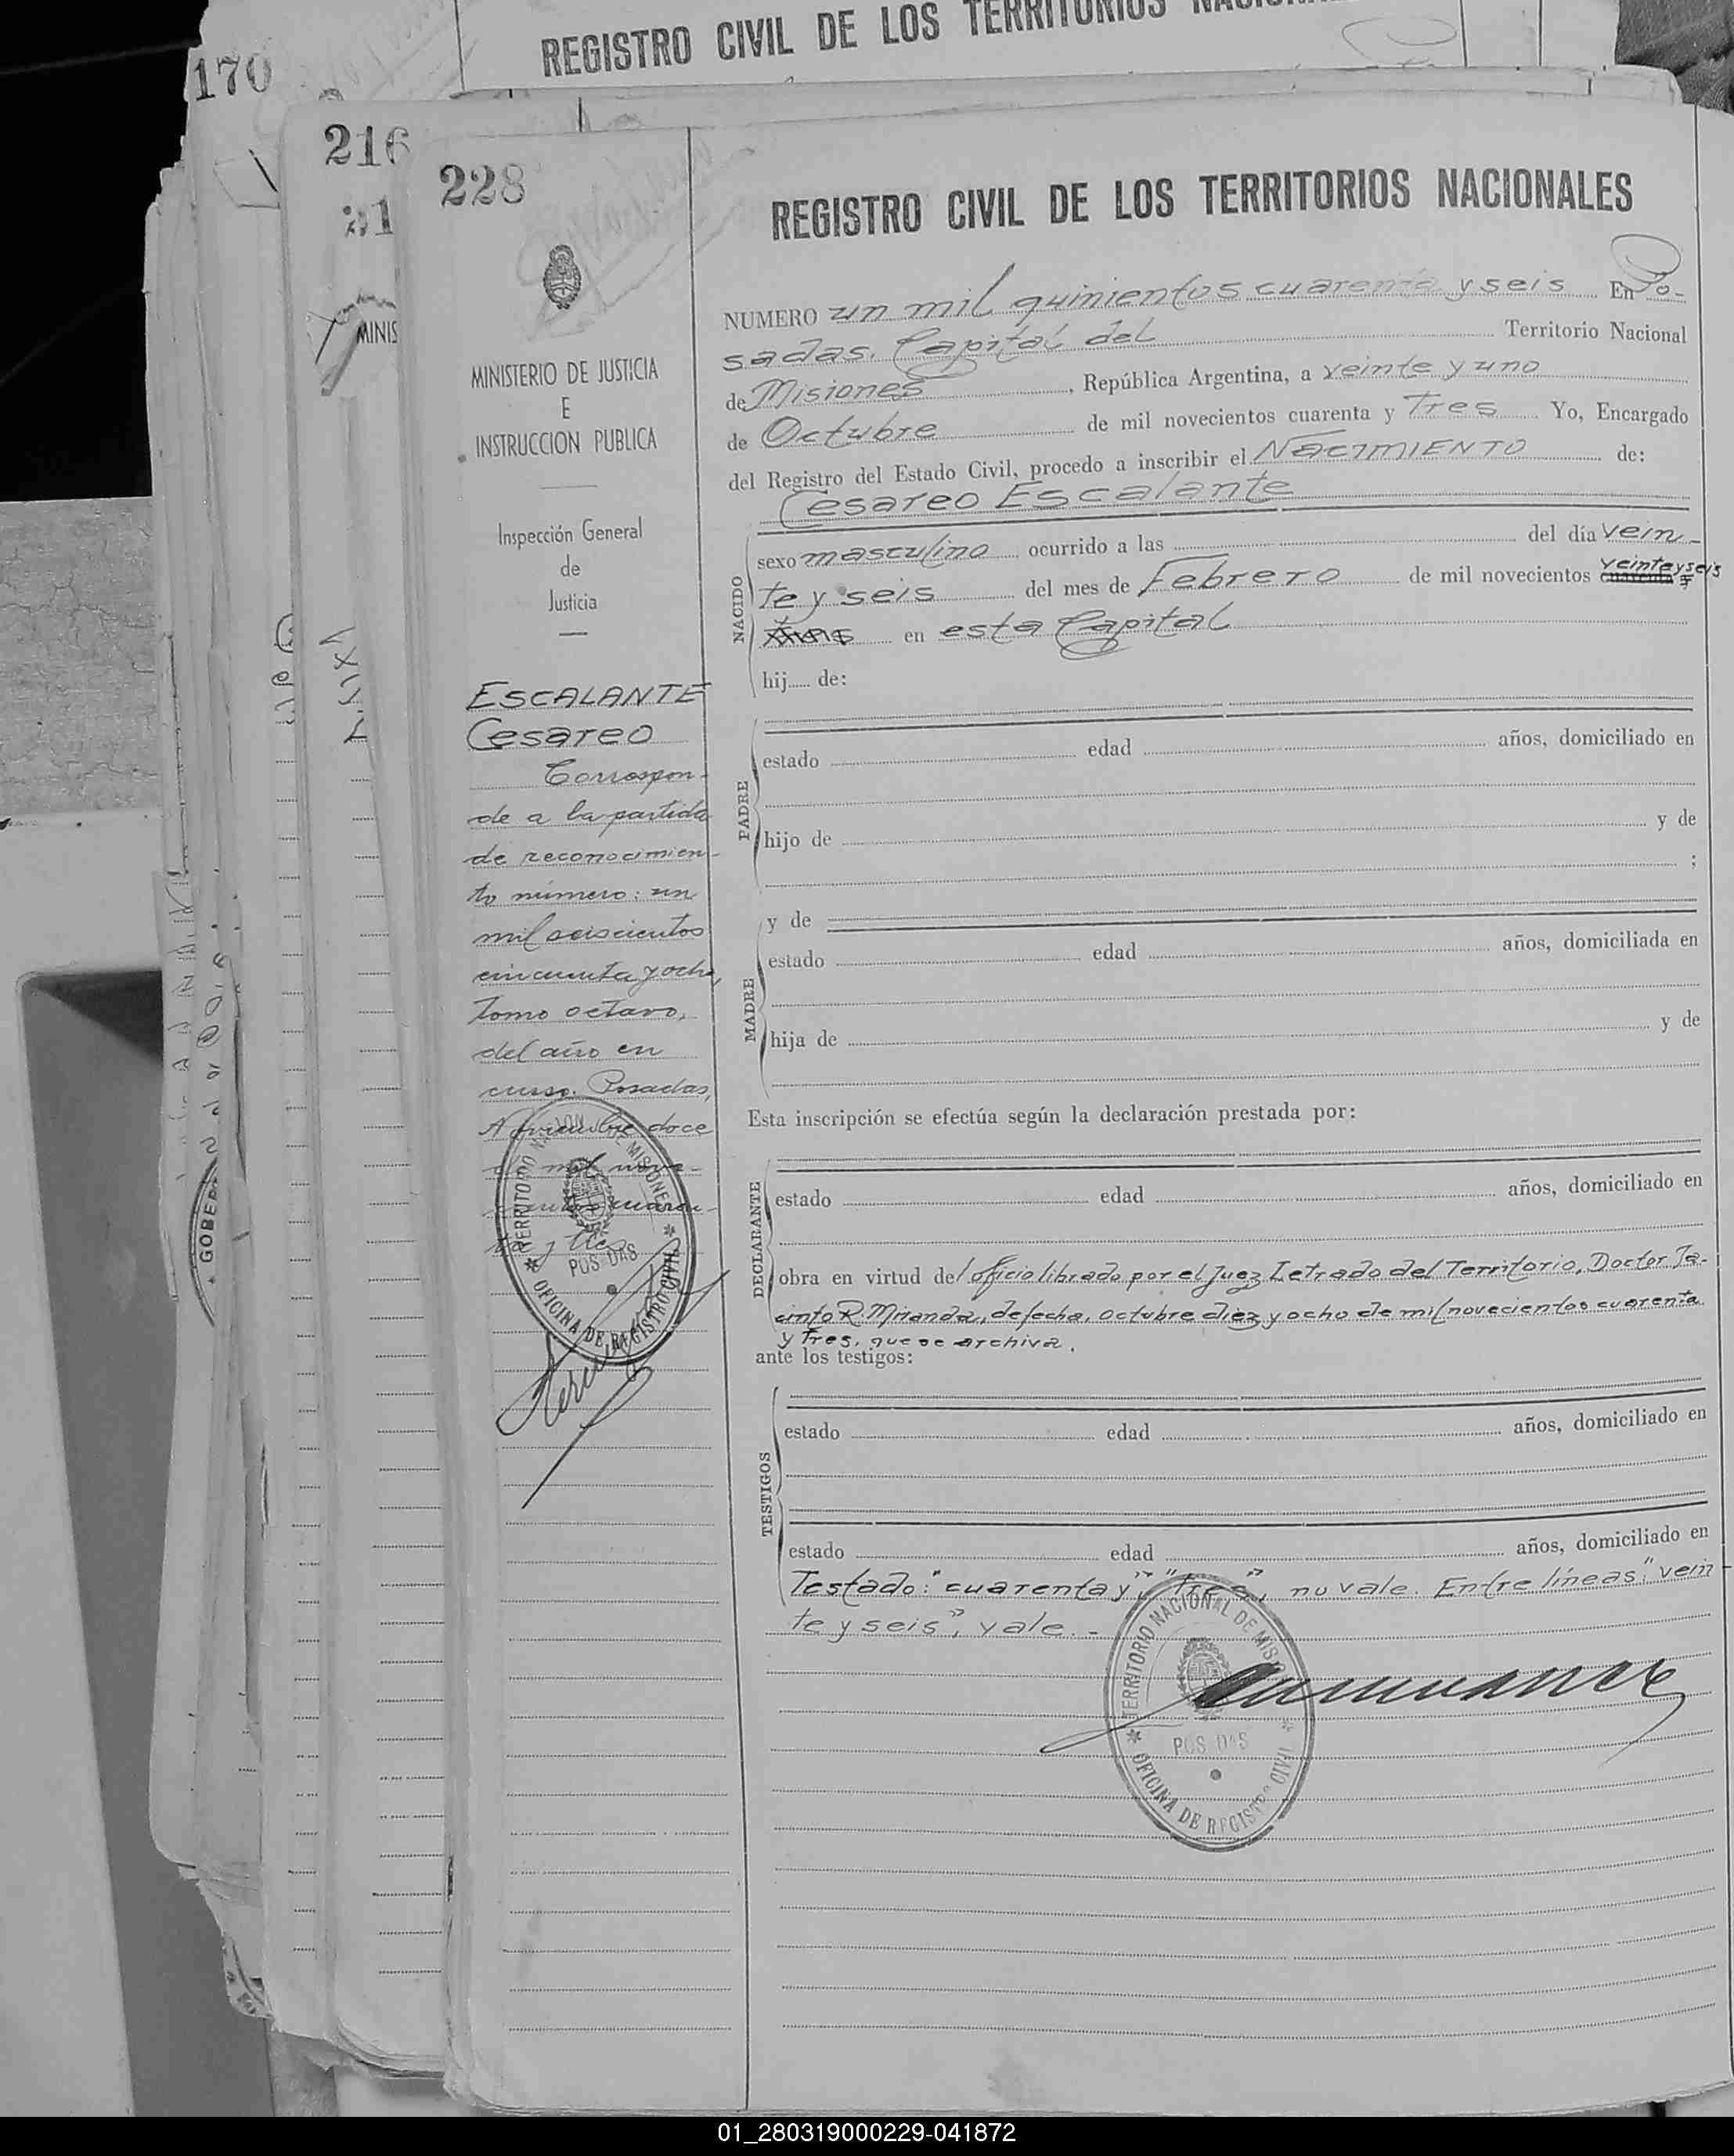 REGISTRO CIVIL DE LOS TERRITORIOS
170
216
21
MINIS
228
REGISTRO CIVIL DE LOS TERRITORIOS NACIONALES
MINISTERIO DE JUSTICIA
E
INSTRUCCION PUBLICA
Inspección General
de
Justicia
ESCALANTE
Cesareo
Correspon-
de a la partida
de reconocimien-
to número: un
mil seiscientos
cincuenta y ocho,
tomo octavo,
del año en
curso. Posadas,
Noviembre doce
de mil nove-
cientos cuaren-
ta y tres
TERRITORIO NACIONAL DE MISIONES
POSADAS
OFICINA DE REGISTRO CIVIL
NUMERO un mil quinientos cuarenta y seis En Po-
sadas, Capital del Territorio Nacional
de Misiones, República Argentina, a veinte y uno
de Octubre de mil novecientos cuarenta y Tres Yo, Encargado
del Registro del Estado Civil, procedo a inscribir el NACIMIENTO de:
Cesareo Escalante
NACIDO
sexo masculino ocurrido a las del día vein-
te y seis del mes de Febrero de mil novecientos cuarenta y veinte y seis
tres en esta Capital
hij de:
PADRE
estado edad años, domiciliado en
hijo de y de
;
MADRE
y de
estado edad años, domiciliada en
hija de y de
Esta inscripción se efectúa según la declaración prestada por:
DECLARANTE
estado edad años, domiciliado en
obra en virtud del oficio librado por el Juez Letrado del Territorio, Doctor Ja-
cinto R. Miranda, de fecha, octubre diez y ocho de mil novecientos cuarenta
y Tres, que se archiva.
ante los testigos:
TESTIGOS
estado edad años, domiciliado en
estado edad años, domiciliado en
Testado: "cuarenta y", "tres", no vale. Entre líneas: "vein-
te y seis", vale.-
TERRITORIO NACIONAL DE MISIONES
POSADAS
OFICINA DE REGISTRO CIVIL
GOBER
01_280319000229-041872